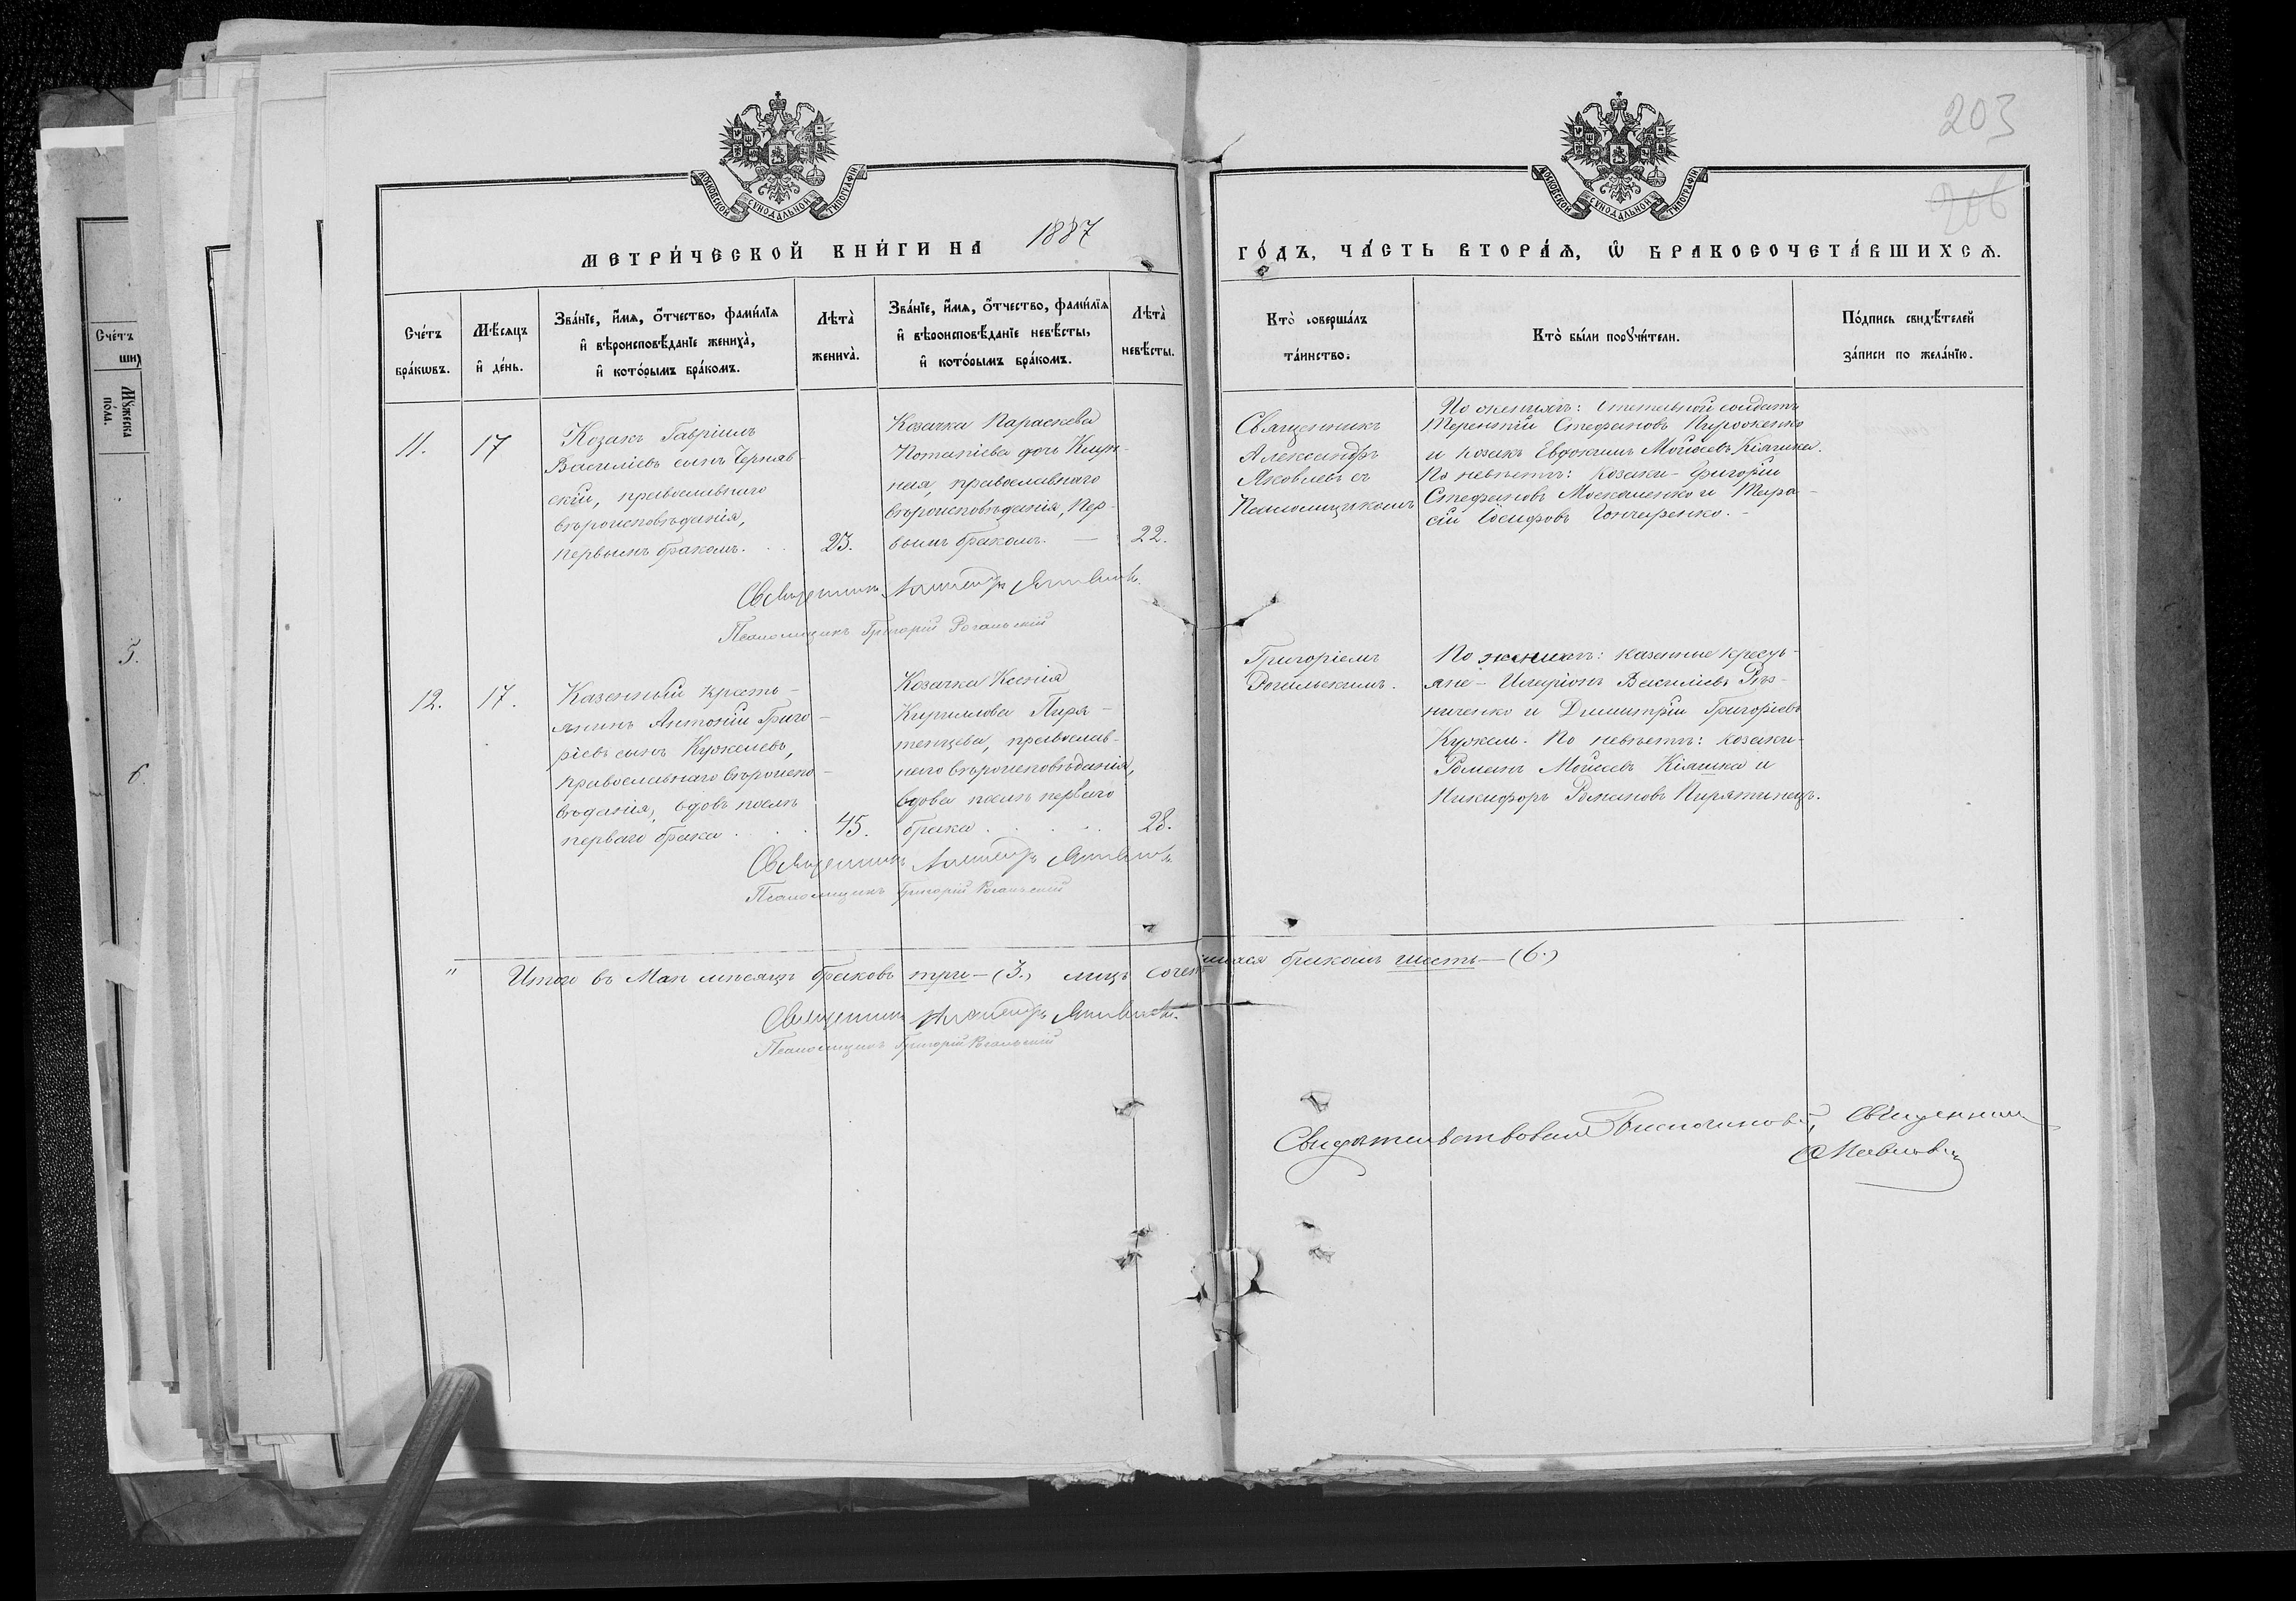 203
206
МОСКОВСКОЙ СѴНОДАЛЬНОЙ ТИПОГРАФІИ
МОСКОВСКОЙ СѴНОДАЛЬНОЙ ТИПОГРАФІИ
МЕТРИ́ЧЕСКОЙ КНИ́ГИ НА 1887
ГО́ДЪ, ЧА́СТЬ ВТОРА́Ѧ, Ѡ БРАКОСОЧЕТА́ВШИХСѦ.
Сче́тъ
бра́кѡвъ.
Мѣ́сѧцъ
и҆ де́нь.
Зва́нїе, и҆́мѧ, ѻ҆́тчество, фами́лїѧ
и҆ вѣроисповѣ́данїе жениха̀,
и҆ кото́рымъ бра́комъ.
Лѣта̀
жениха̀.
Зва́нїе, и҆́мѧ, ѻ҆́тчество, фами́лїѧ
и҆ вѣроисповѣ́данїе невѣ́сты,
и҆ кото́рымъ бра́комъ.
Лѣта̀
невѣ́сты.
Кто̀ соверша́лъ
та́инство.
Кто̀ бы́ли порꙋчи́тели.
По́дпись свидѣ́телей
за́писи по жела́нїю.
11.
17
Козакъ Гавріилъ
Василіевъ сынъ Черняв-
скій, православнаго
вѣроисповѣданія,
первымъ бракомъ.
23.
Козачка Параскева
Потапіева дочь
ная, православнаго
вѣроисповѣданія, пер-
вымъ бракомъ. —
22.
Священникъ
Александръ
Яковлевъ съ
Псаломщикомъ
По женихѣ: солдатъ
Терентій Стефановъ
и козакъ Евдокимъ Моисеевъ Кіяшка.
По невѣстѣ: козаки - Григорій
Стефановъ Москаленко и Тара-
сій Іосифовъ Гончаренко. -
Священникъ Александръ Яковлевъ.
Псаломщикъ Григорій Рогальскій
12.
17.
Казенный кресть-
янинъ Антоній Григо-
ріевъ сынъ Кужелевъ,
православнаго вѣроиспо-
вѣданія, вдовъ послѣ
перваго брака . . .
45.
Козачка Ксенія
Кириллова Пиря-
тинцева, православ-
наго вѣроисповѣданія,
вдова послѣ перваго
брака . . . .
28.
Григоріемъ
Рогальскимъ.
По женихѣ: казенные кресть-
яне - Иларіонъ Василіевъ Рѣз-
ниченко и Димитрій Григоріевъ
Кужель. По невѣстѣ: козаки -
Романъ Моисеевъ Кіяшка и
Никифоръ Романовъ Пирятинецъ.
Священникъ Александръ Яковлевъ
Псаломщикъ Григорій Рогальскій
" Итого въ Маѣ мѣсяцѣ браковъ три - (3.) лицъ сочет шихся бракомъ шесть - (6.)
Священникъ Александръ Яковлевъ.
Псаломщикъ Григорій Рогальскій
Свидѣтельствовалъ Благочинный, Священникъ
Сче́тъ
Мꙋ́жеска
по́ла.
5.
6.